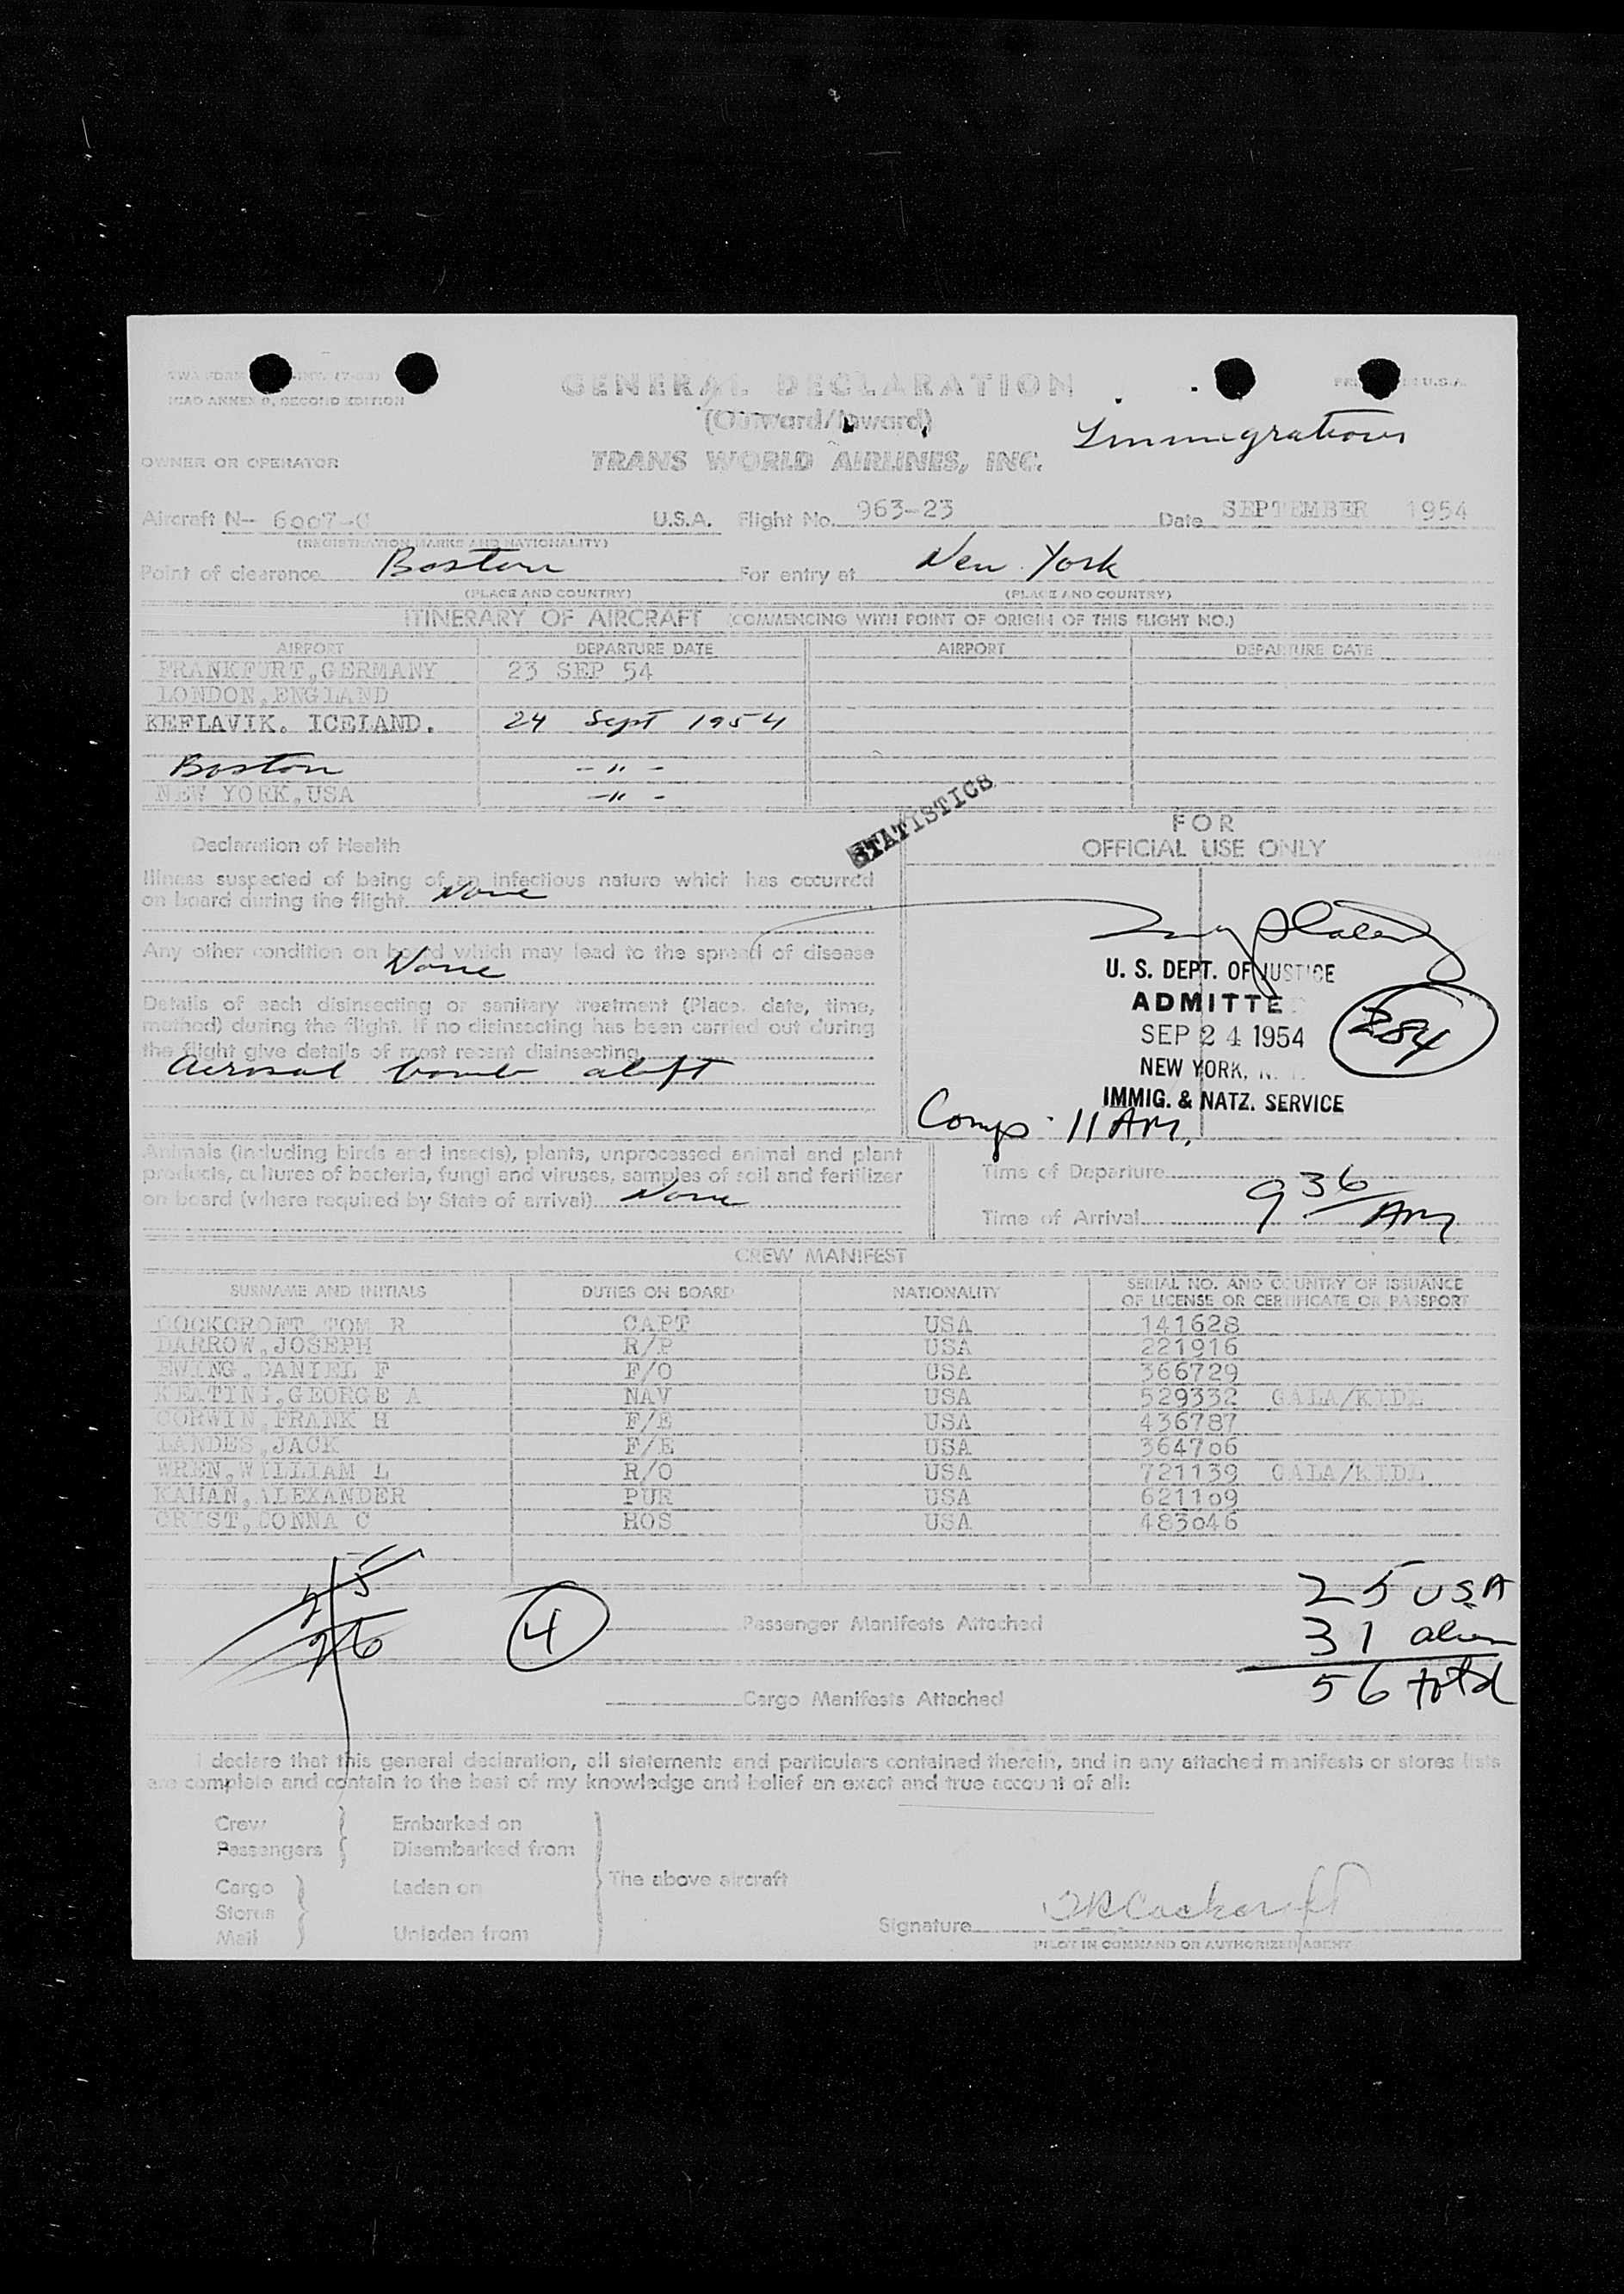 ICAO ANNEX 9, SECOND EDITION
GENERAL DECLARATION
(Outward/Inward)
Immigration
OWNER OR OPERATOR
TRANS WORLD AIRLINES, INC.
Aircraft N-- 6007-C U.S.A. Flight No. 963-23 Date SEPTEMBER 1954
(REGISTRATION MARKS AND NATIONALITY)
Point of clearance Boston For entry at New York
(PLACE AND COUNTRY) (PLACE AND COUNTRY)
ITINERARY OF AIRCRAFT (COMMENCING WITH POINT OF ORIGIN OF THIS FLIGHT NO.)
AIRPORT DEPARTURE DATE AIRPORT DEPARTURE DATE
FRANKFURT,GERMANY 23 SEP 54
LONDON,ENGLAND
KEFLAVIK. ICELAND. 24 Sept 1954
Boston - " -
NEW YORK,USA - " -
STATISTICS
FOR
OFFICIAL USE ONLY
Declaration of Health
Illness suspected of being of an infectious nature which has occurred
on board during the flight. None
Any other condition on board which may lead to the spread of disease
None
Details of each disinsecting or sanitary treatment (Place, date, time,
method) during the flight. If no disinsecting has been carried out during
the flight give details of most recent disinsecting
Aerosol bomb aloft
U. S. DEPT. OF JUSTICE
ADMITTE
SEP 24 1954
NEW YORK, N.
IMMIG. & NATZ. SERVICE
284
Comp. 11 AM.
Animals (including birds and insects), plants, unprocessed animal and plant
products, cultures of bacteria, fungi and viruses, samples of soil and fertilizer
on board (where required by State of arrival) None
Time of Departure
Time of Arrival 9 36 AM
CREW MANIFEST
SURNAME AND INITIALS DUTIES ON BOARD NATIONALITY SERIAL NO. AND COUNTRY OF ISSUANCE
OF LICENSE OR CERTIFICATE OR PASSPORT
COCKCROFT TOM R CAPT USA 141628
DARROW,JOSEPH R/P USA 221916
EWING,DANIEL F F/O USA 366729
KEATING,GEORGE A NAV USA 529332 GALA/KIDL
CORWIN,FRANK H F/E USA 436787
LANDES,JACK F/E USA 364706
WREN,WILLIAM L R/O USA 721139 GALA/KIDL
KAHAN,ALEXANDER PUR USA 621109
CRIST,DONNA C HOS USA 483046
4 Passenger Manifests Attached
25 USA
31 alien
56 total
Cargo Manifests Attached
I declare that this general declaration, all statements and particulars contained therein, and in any attached manifests or stores lists
are complete and contain to the best of my knowledge and belief an exact and true account of all:
Crew Embarked on
Passengers Disembarked from
Cargo Laden on The above aircraft
Stores
Mail Unladen from
Signature TRCockcroft
PILOT IN COMMAND OR AUTHORIZED AGENT